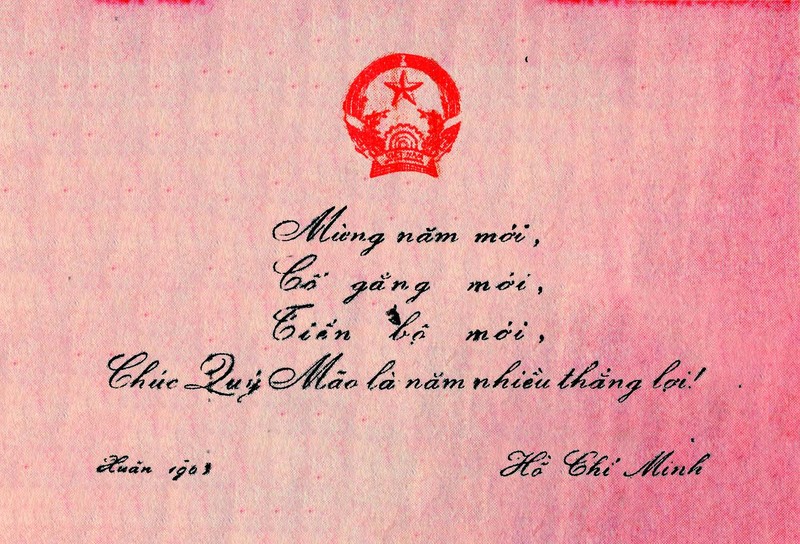 VIỆT NAM
Mừng năm mới,
Cố gắng mới,
Tiến bộ mới,
Chúc Quý Mão là năm nhiều thắng lợi!
Xuân 1963
Hồ Chí Minh